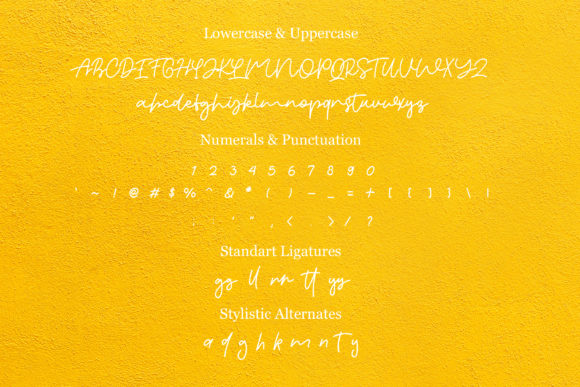 Lowercase & Uppercase
ABCDEFGHIJKLMNOPQRSTUVWXYZ
abcdefghijklmnopqrstuvwxyz
Numerals & Punctuation
1 2 3 4 5 6 7 8 9 0
` ~ ! @ # $ % ^ & * ( ) - _ = + [ { ] } \ |
; : ' " , < . > / ?
Standart Ligatures
gs ll nn tt ys
Stylistic Alternates
a d g h k m n t y